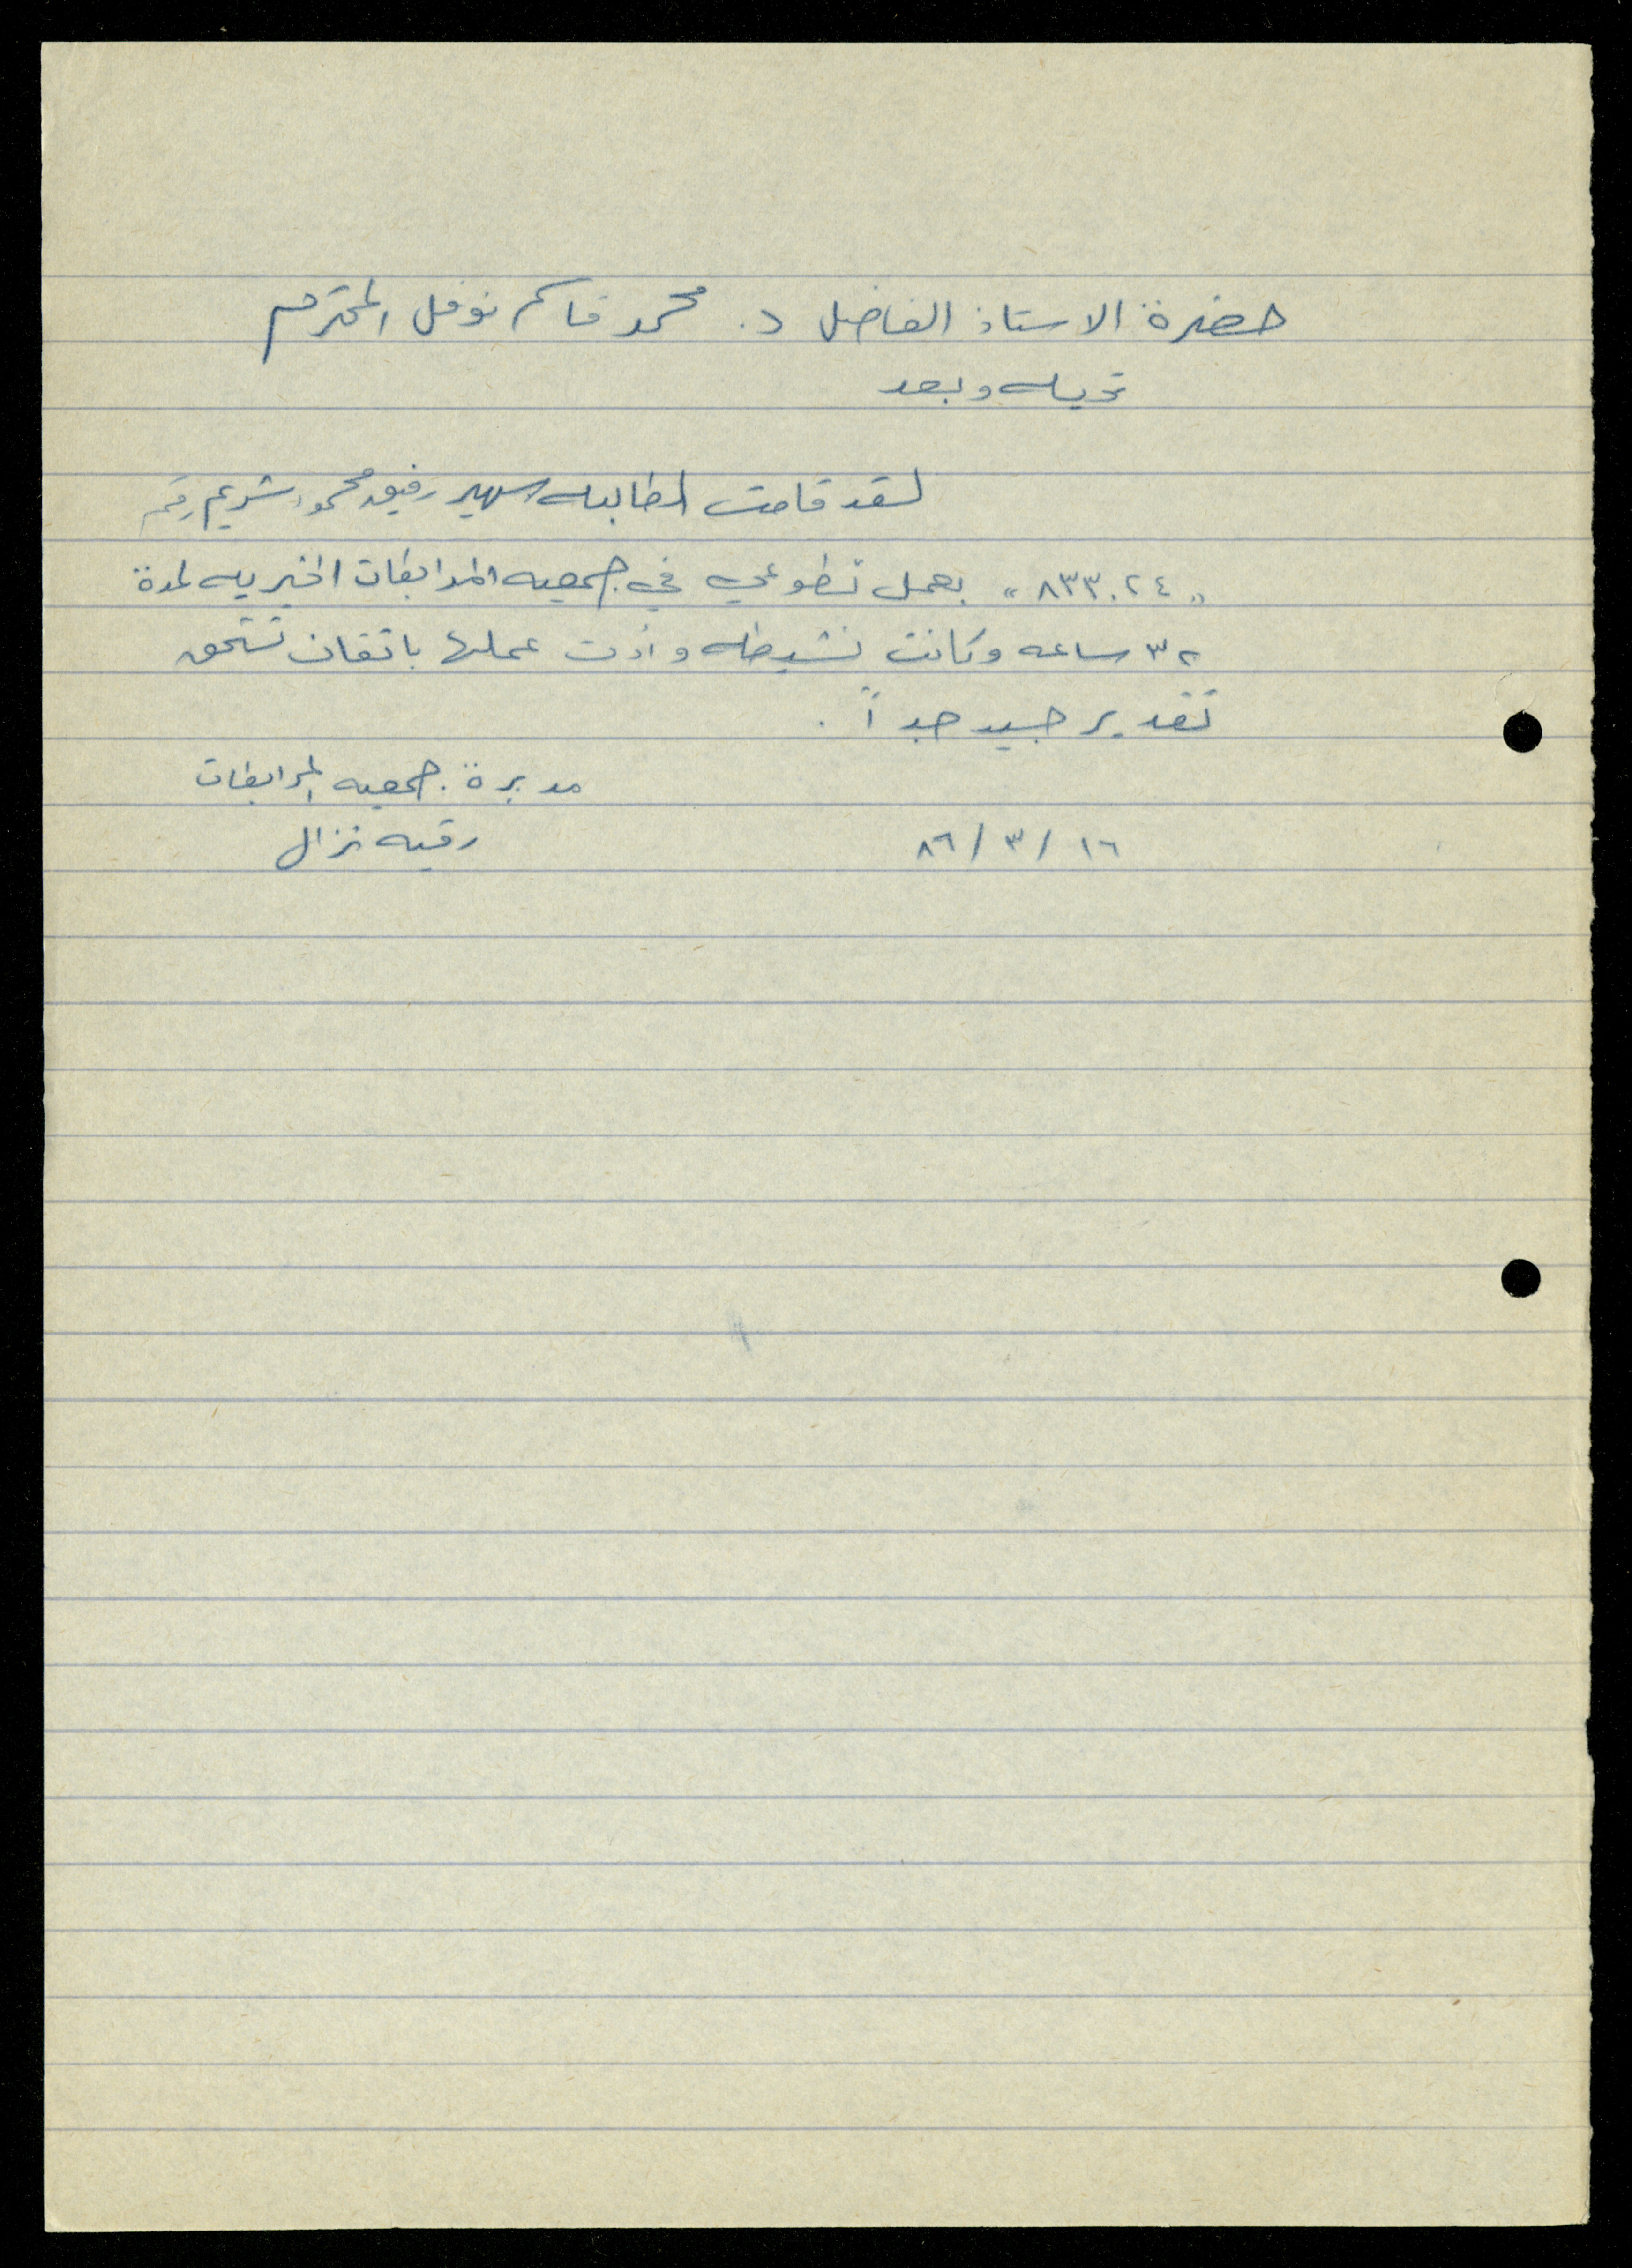 حضرة الاستاذ الفاضل د. محمد قاسم نوفل المحترم
تحيه وبعد
لقد قامت الطالبه سهير رفيق محمود شريم رقم
"٨٣٣٠٢٤" بعمل تطوعي في جمعيه المرابطات الخيريه لمدة
٣٢ ساعه وكانت نشيطه وأدت عملها باتقان تستحق
تقدير جيد جداً.
مديرة جمعيه المرابطات
١٦/٣/٨٦ رقيه نزال